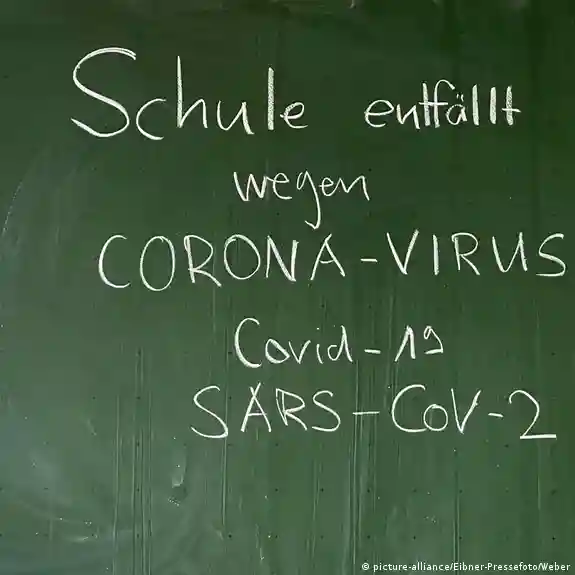 Schule entfällt
wegen
CORONA-VIRUS
Covid-19
SARS-CoV-2
© picture-alliance/Eibner-Pressefoto/Weber